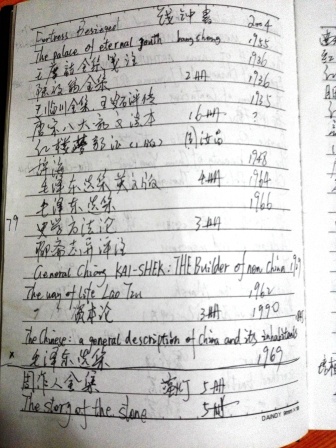 Fortress Besieged 钱钟书 2004
The palace of eternal youth hong sheng 1955
王摩诘全集笺注 1936
全集 1936
王临川全集 1935
唐宋八大家文读本 16册 ?
红楼梦 (1-120)
辞海 1948
毛泽东选集 英文版 4册 1964
毛泽东选集 1966
79
史学方法论 3册
聊斋志异评注
General Chiang KAI-SHEK: THE Builder of new China
The way of life Lao Tzu 1962
资本论 3册 1990
The Chinese: a general description of China and its inhabitants
x 毛泽东选集 1969
周作人全集 5册
The story of the stone 5册
DANDY